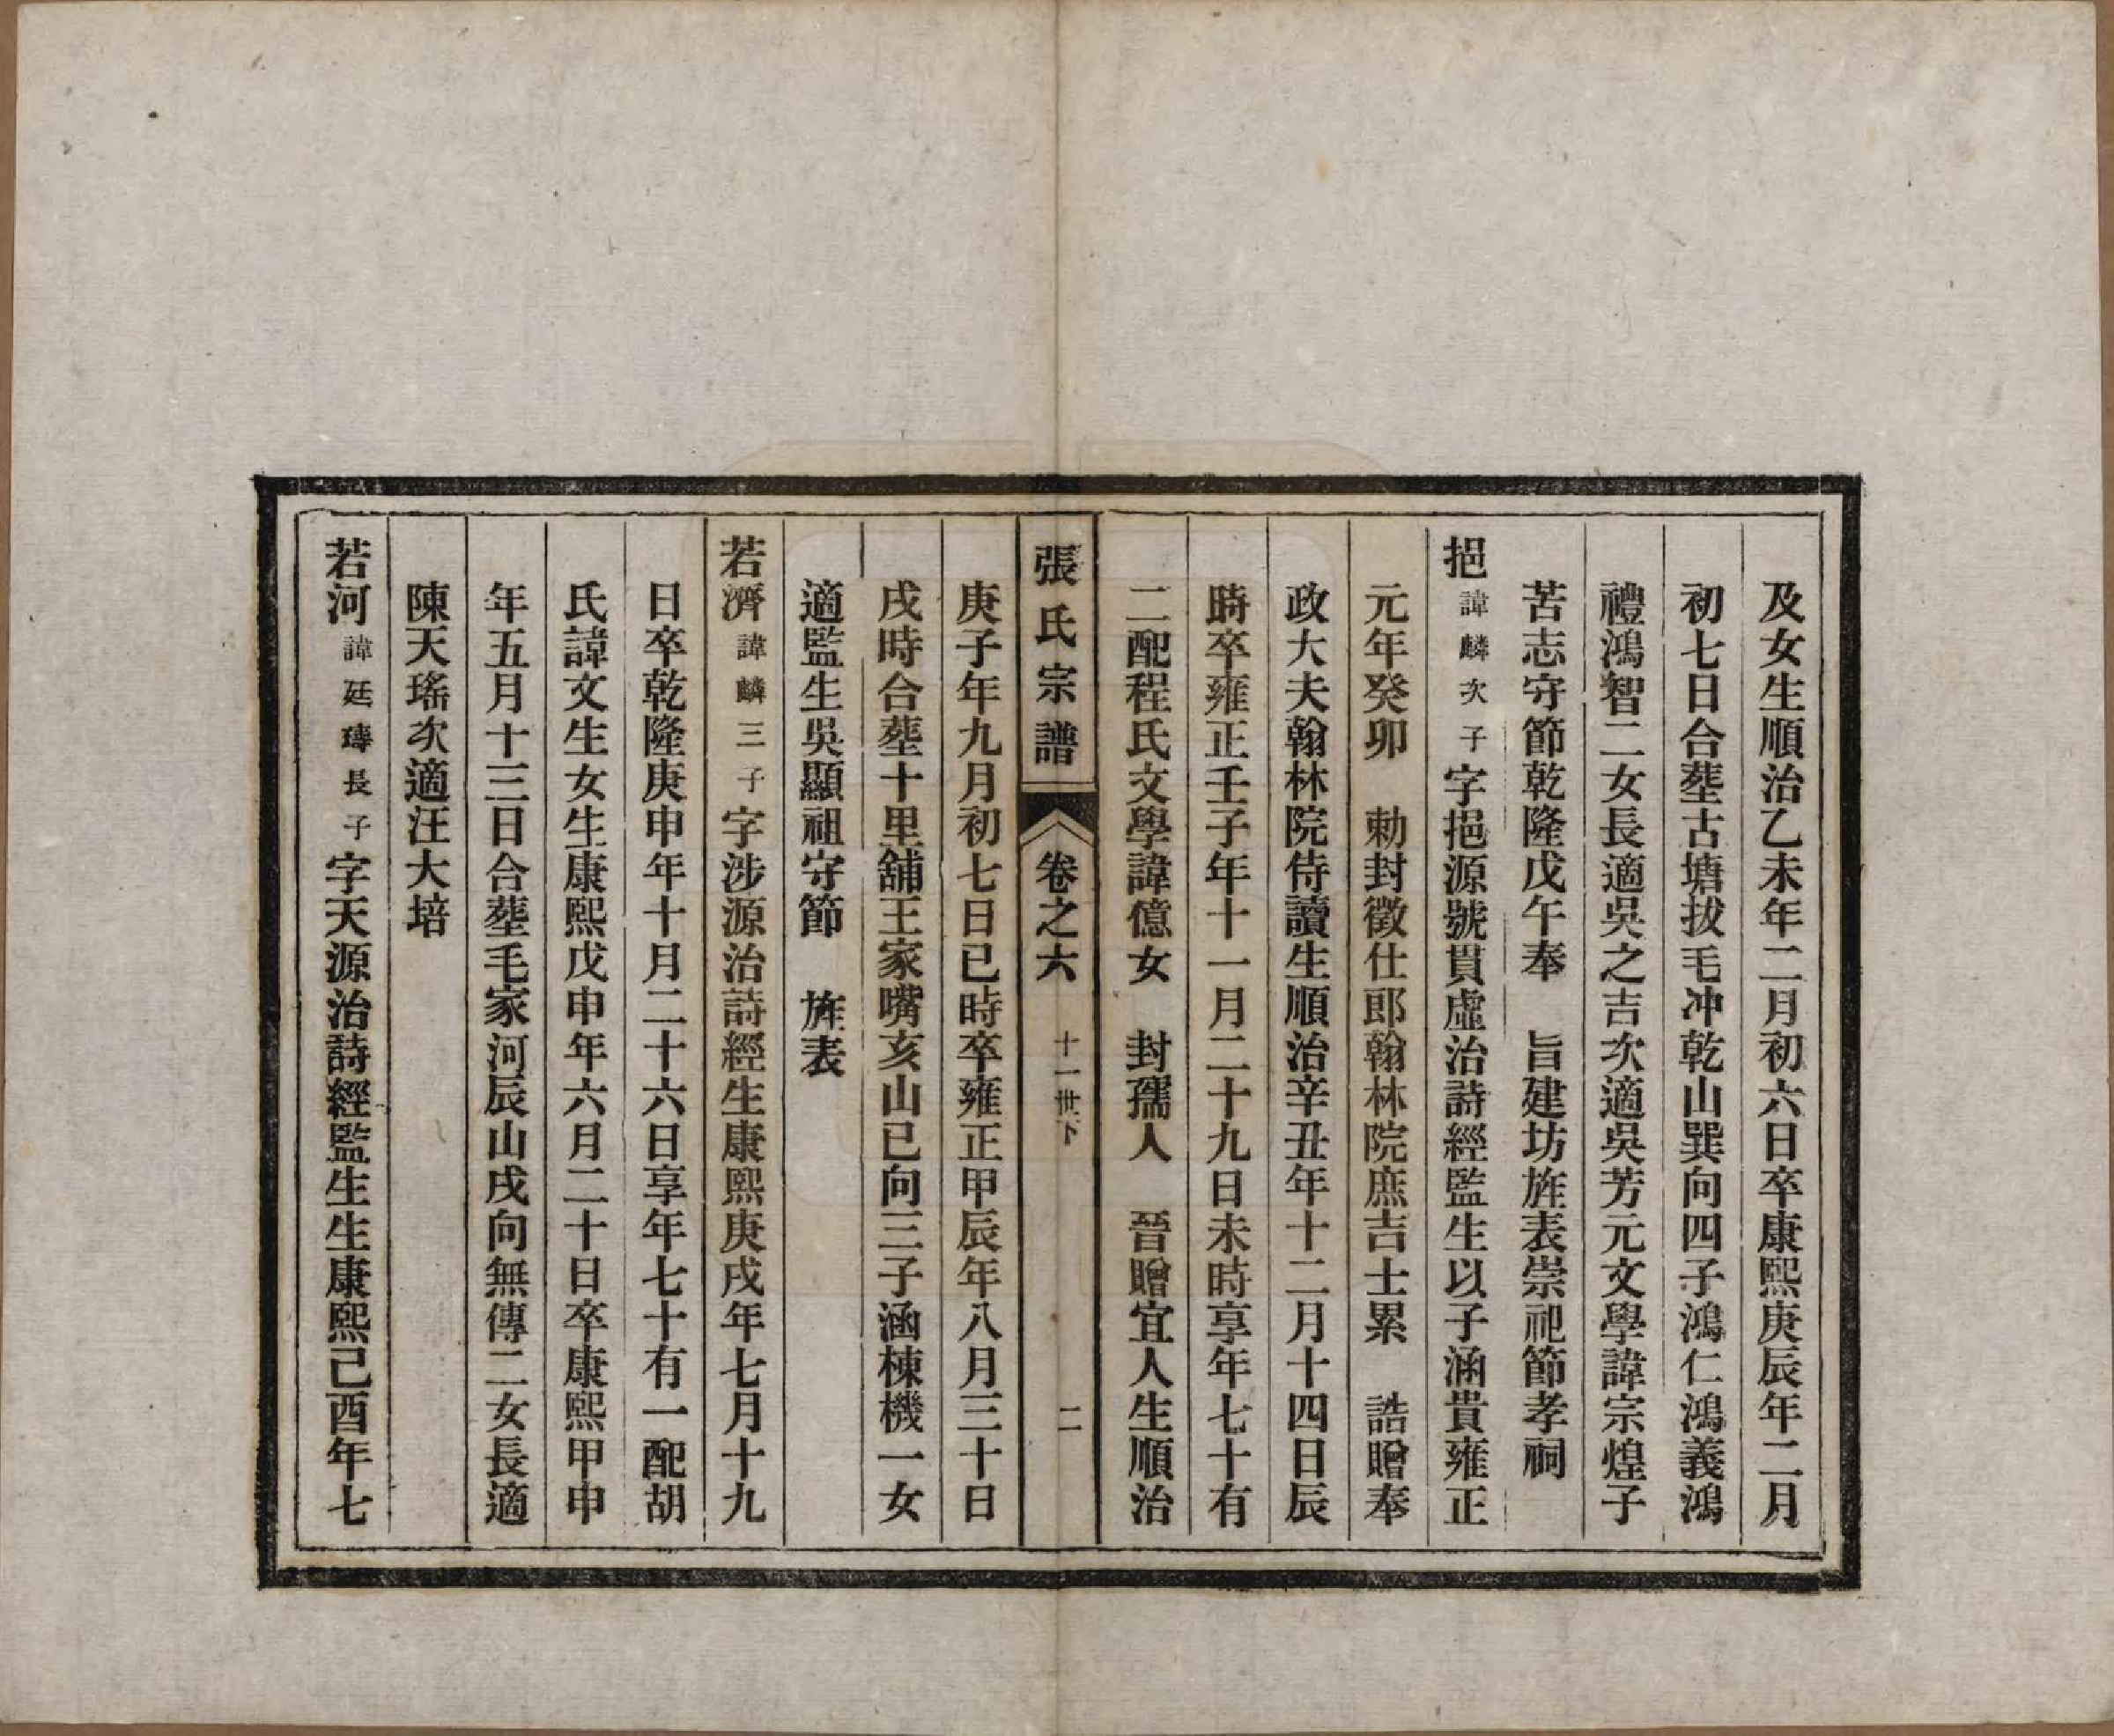 及女生順治乙未年二月初六日卒康熙庚辰年二月
初七日合塟古塘拔毛冲乾山巽向四子鴻仁鴻義鴻
禮鴻智二女長適吳之吉次適吳芳元文學諱宗煌子
苦志守節乾隆戊午奉　旨建坊旌表崇祀節孝祠
挹諱麟次子字挹源號貫虛治詩經監生以子涵貴雍正
元年癸卯　勅封徵仕郎翰林院庶吉士累　誥贈奉
政大夫翰林院侍讀生順治辛丑年十二月十四日辰
時卒雍正壬子年十一月二十九日未時享年七十有
二配程氏文學諱億女　封孺人　晉贈宜人生順治
張氏宗譜　卷之六　十一世下　二
庚子年九月初七日巳時卒雍正甲辰年八月三十日
戌時合塟十里舖王家嘴亥山巳向三子涵棟機一女
適監生吳顯祖守節　旌表
若濟諱麟三子字涉源治詩經生康熙庚戌年七月十九
日卒乾隆庚申年十月二十六日享年七十有一配胡
氏諱文生女生康熙戊申年六月二十日卒康熙甲申
年五月十三日合塟毛家河辰山戌向無傳二女長適
陳天瑤次適汪大培
若河諱廷瑑長子字天源治詩經監生生康熙己酉年七